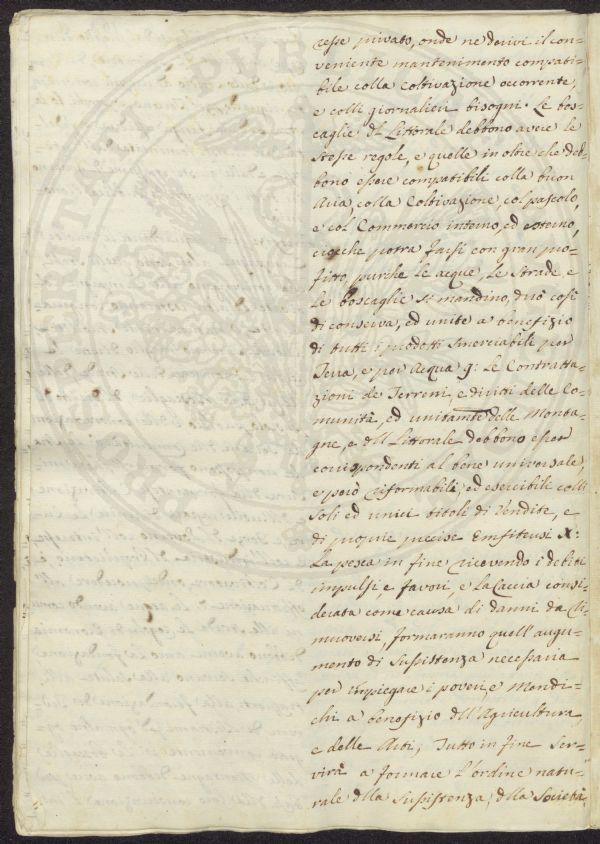 resse privato, onde ne derivi il con-
veniente mantenimento compati-
bile colla Coltivazione occorrente,
e colli giornalieri bisogni. Le bos-
caglie dl Littorale debbono avere le
stesse regole, e quelle in oltre che deb-
bono essere compatibili colla buon
Aria, colla Coltivazione, col pascolo,
e col Commercio interno, ed esterno,
ciocche potra farsi con gran pro-
fitto, purche le acque, le strade, e
le boscaglie si mandino, dirò così
di conserva, ed unite a benefizio
di tutti i prodotti smerciabili per
Terra, e per Acqua 9: Le Contratta-
zioni de Terreni, e diritti delle Co-
munità, ed unitamte delle Monta-
gne, e dll Littorale debbono esser
corrispondenti al bene universale,
e però riformabili, ed esercibile colli
soli ed unici titoli di Vendite, e
di proprie precise Emfiteusi X:
La pesca in fine ricevendo i debiti
impulsi e favori, e la Caccia consi-
derata come causa di danni da ri-
muoversi, formaranno quell'augu-
mento di Sussistenza necessaria
per impiegare i poveri, e Mendi-
chi a benefizio dll'Agricultura,
e delle Arti; Tutto in fine ser-
virà a formare l'ordine natu-
rale dlla Sussistenza, dlla Società